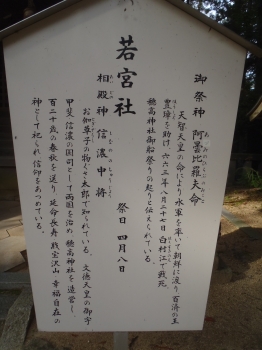 若宮社
御祭神 阿曇比羅夫命
あづみのひらふのみこと
天智天皇の命により水軍を率いて朝鮮に渡り百済の王
豊璋を助け、六六三年八月二十七日白村江で戦死
ほうしょう
穂高神社御船祭りの起りと伝えられている。
祭日 四月八日
相殿神 信濃中将
しなのちゅうじょう
お伽草子の物ぐさ太郎で知られている。文徳天皇の御宇
甲斐、信濃の国司として両国を治め、穂高神社を造営し、
百二十歳の春秋を送り、延命長寿、銭宝沢山、幸福自在の
神として祀られ信仰をあつめている。